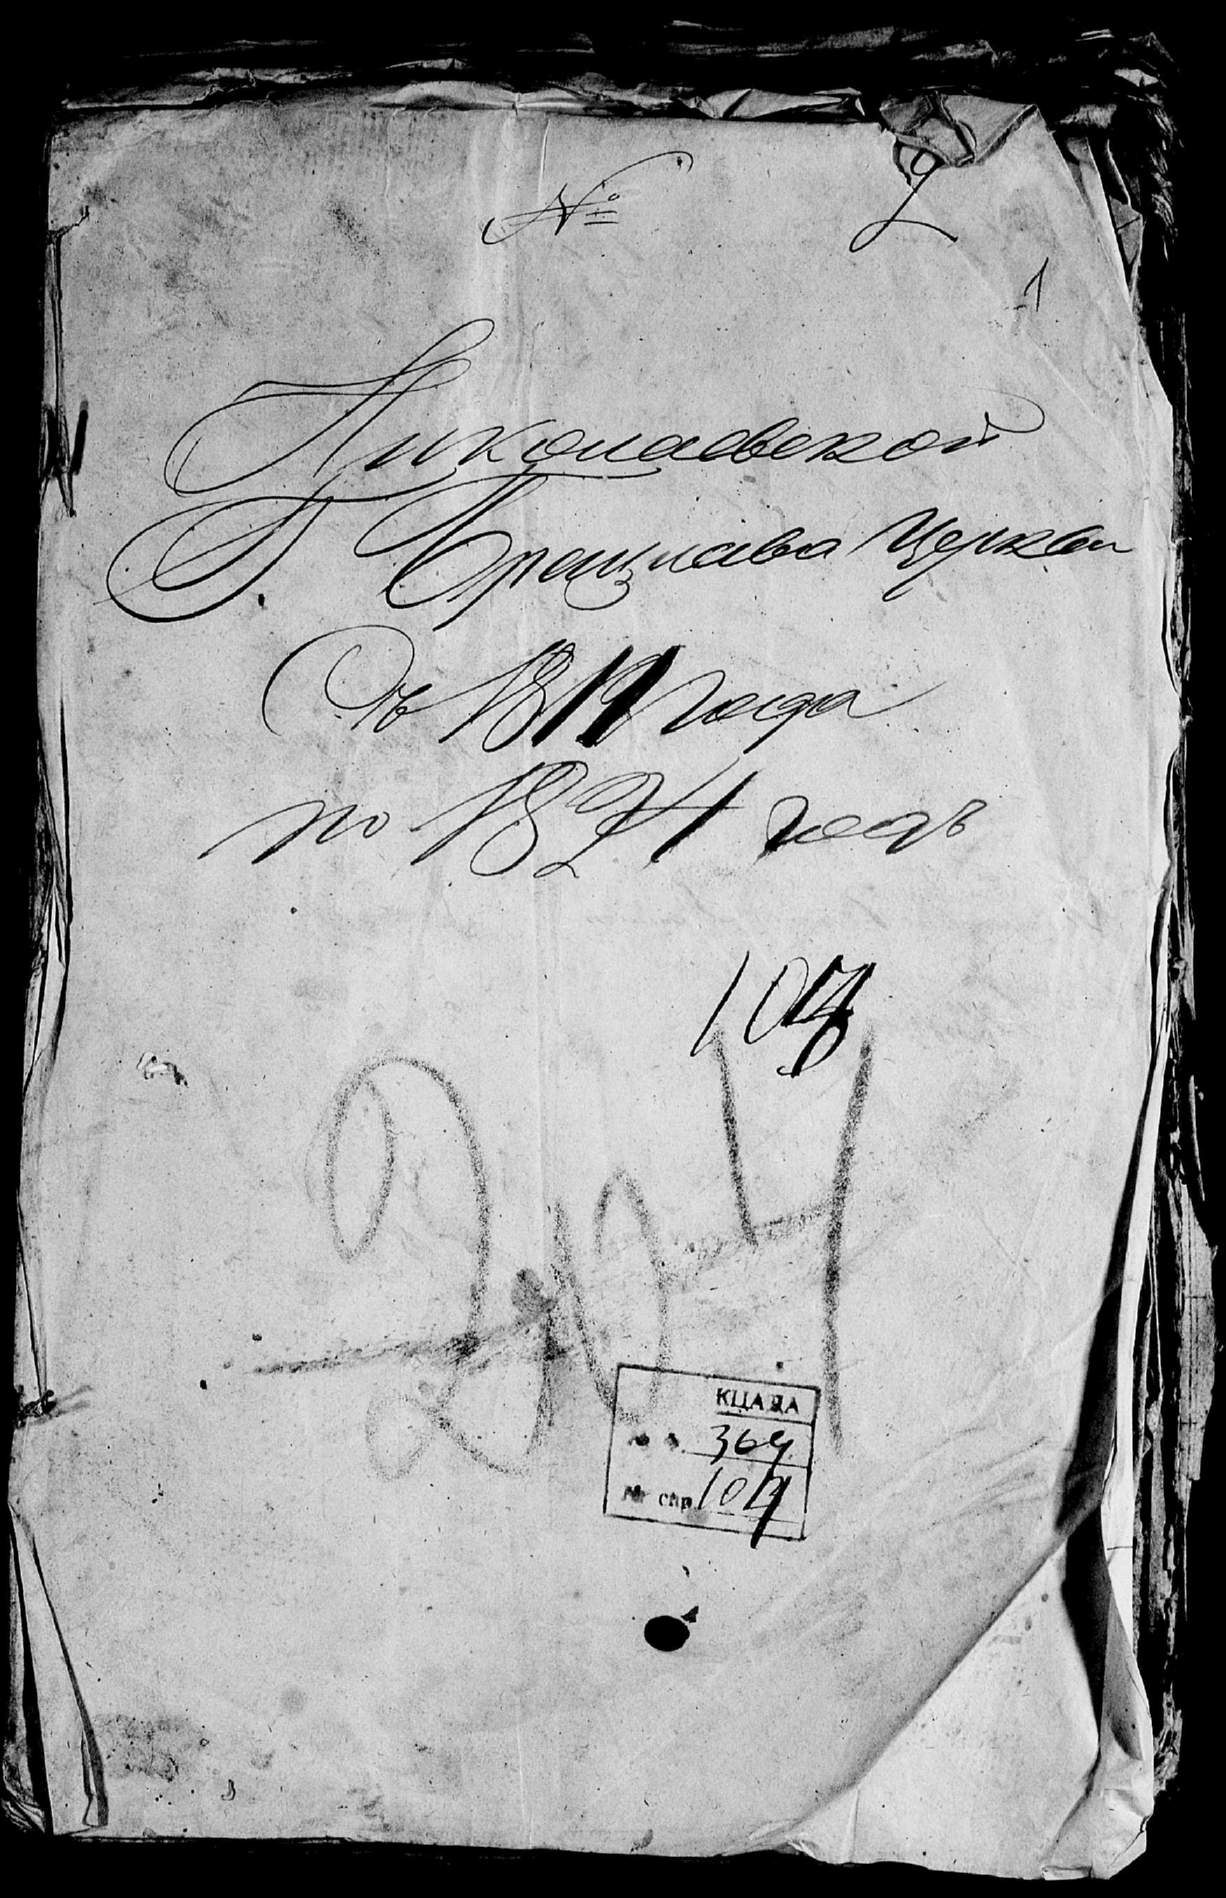 № 2
1
Николаевской
Г. Брацлава Церкви
Съ 1811 года
по 1821 годъ
104
204
КЦАДА
369
№ спр. 104